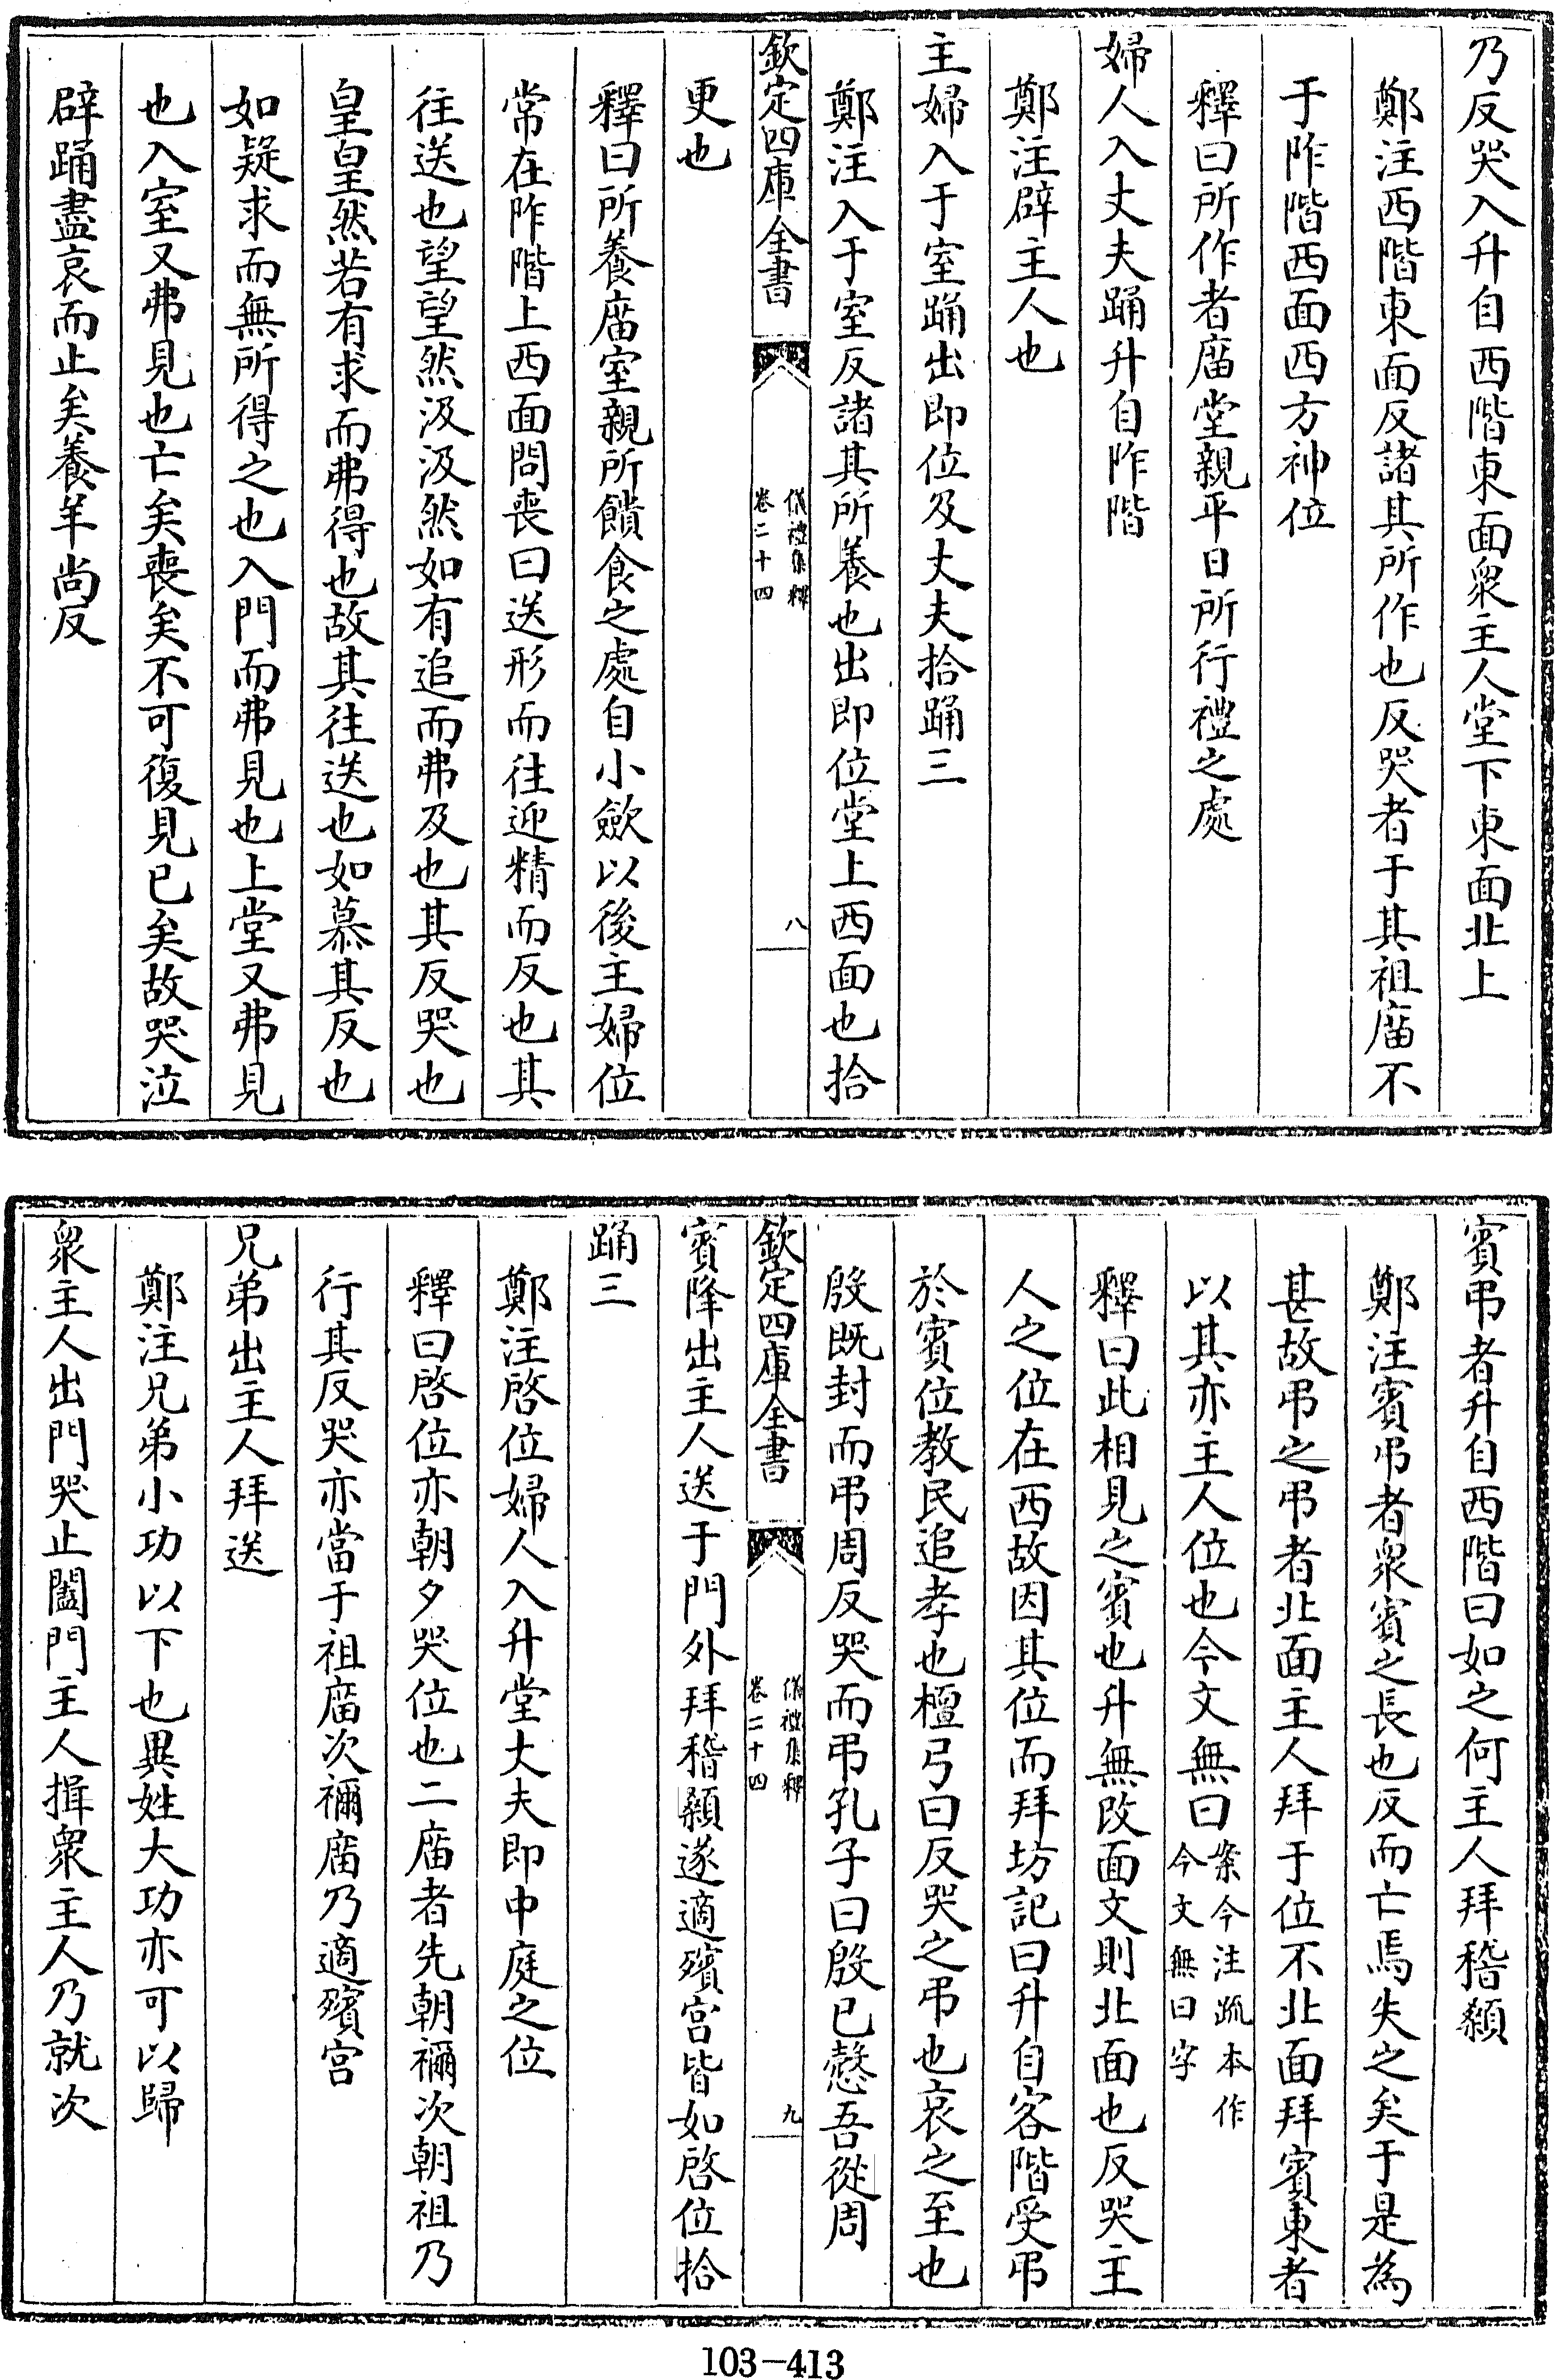 乃反哭入升自西階東面衆主人堂下東面北上
鄭注西階東面反諸其所作也反哭者于其祖廟不
于阼階西面西方神位
釋曰所作者廟堂親平日所行禮之處
婦人入丈夫踊升自阼階
鄭注辟主人也
主婦入于室踊出即位及丈夫拾踊三
鄭注入于室反諸其所養也出即位堂上西面也拾
欽定四庫全書
儀禮集釋
卷二十四
八
更也
釋曰所養廟室親所饋食之處自小斂以後主婦位
常在阼階上西面問喪曰送形而往迎精而反也其
往送也望望然汲汲然如有追而弗及也其反哭也
皇皇然若有求而弗得也故其往送也如慕其反也
如疑求而無所得之也入門而弗見也上堂又弗見
也入室又弗見也亡矣喪矣不可復見已矣故哭泣
辟踊盡哀而止矣養羊尚反
賓弔者升自西階曰如之何主人拜稽顙
鄭注賓弔者衆賓之長也反而亡焉失之矣于是為
甚故弔之弔者北面主人拜于位不北面拜賓東者
以其亦主人位也今文無曰案今注疏本作
今文無曰字
釋曰此相見之賓也升無改面文則北面也反哭主
人之位在西故因其位而拜坊記曰升自客階受弔
於賓位教民追孝也檀弓曰反哭之弔也哀之至也
殷既封而弔周反哭而弔孔子曰殷已慤吾從周
欽定四庫全書
儀禮集釋
卷二十四
九
賓降出主人送于門外拜稽顙遂適殯宮皆如啓位拾
踊三
鄭注啓位婦人入升堂丈夫即中庭之位
釋曰啓位亦朝夕哭位也二廟者先朝禰次朝祖乃
行其反哭亦當于祖廟次禰廟乃適殯宮
兄弟出主人拜送
鄭注兄弟小功以下也異姓大功亦可以歸
衆主人出門哭止闔門主人揖衆主人乃就次
103-413